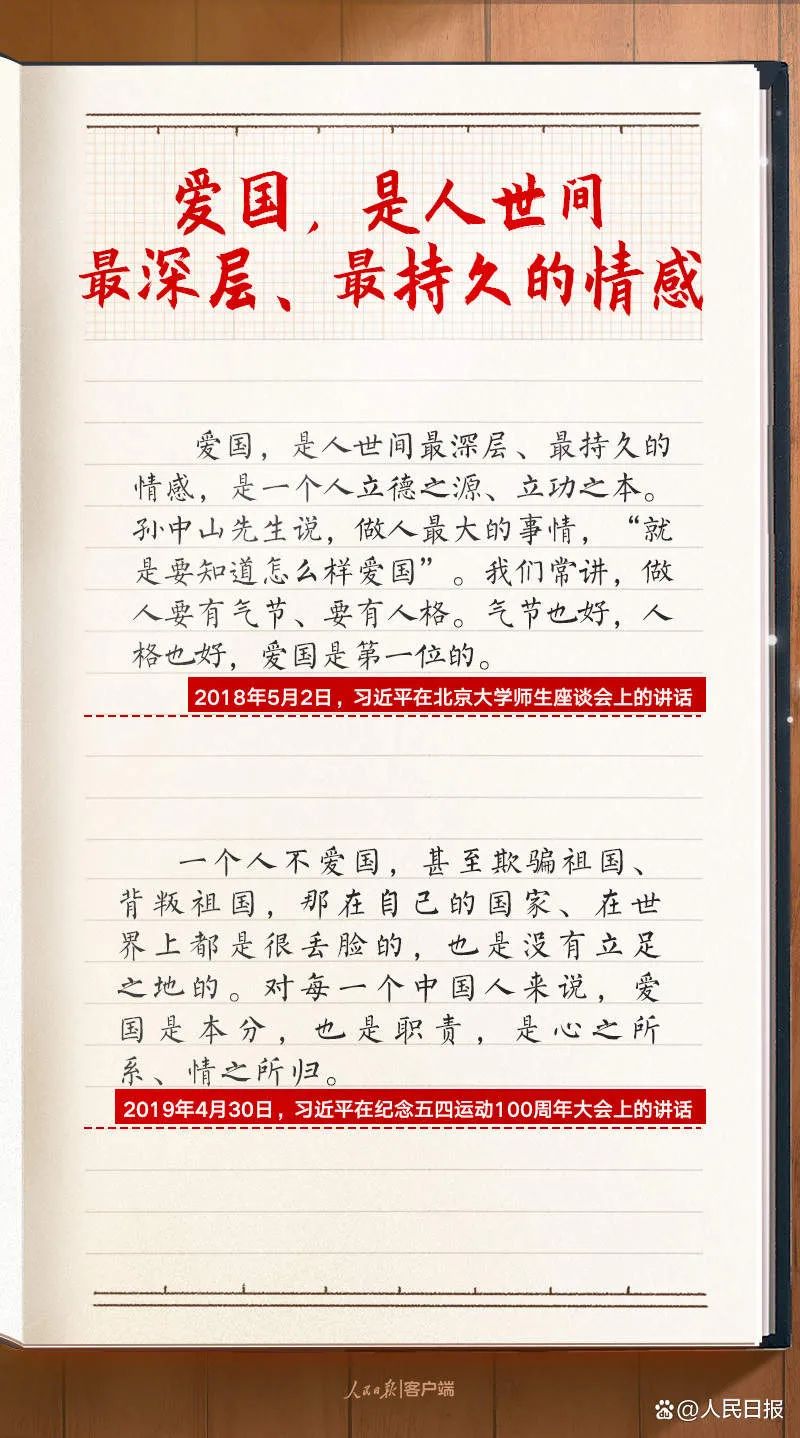 爱国，是人世间
最深层、最持久的情感
爱国，是人世间最深层、最持久的
情感，是一个人立德之源、立功之本。
孙中山先生说，做人最大的事情，“就
是要知道怎么样爱国”。我们常讲，做
人要有气节、要有人格。气节也好，人
格也好，爱国是第一位的。
2018年5月2日，习近平在北京大学师生座谈会上的讲话
一个人不爱国，甚至欺骗祖国、
背叛祖国，那在自己的国家、在世
界上都是很丢脸的，也是没有立足
之地的。对每一个中国人来说，爱
国是本分，也是职责，是心之所
系、情之所归。
2019年4月30日，习近平在纪念五四运动100周年大会上的讲话
人民日报|客户端
@人民日报